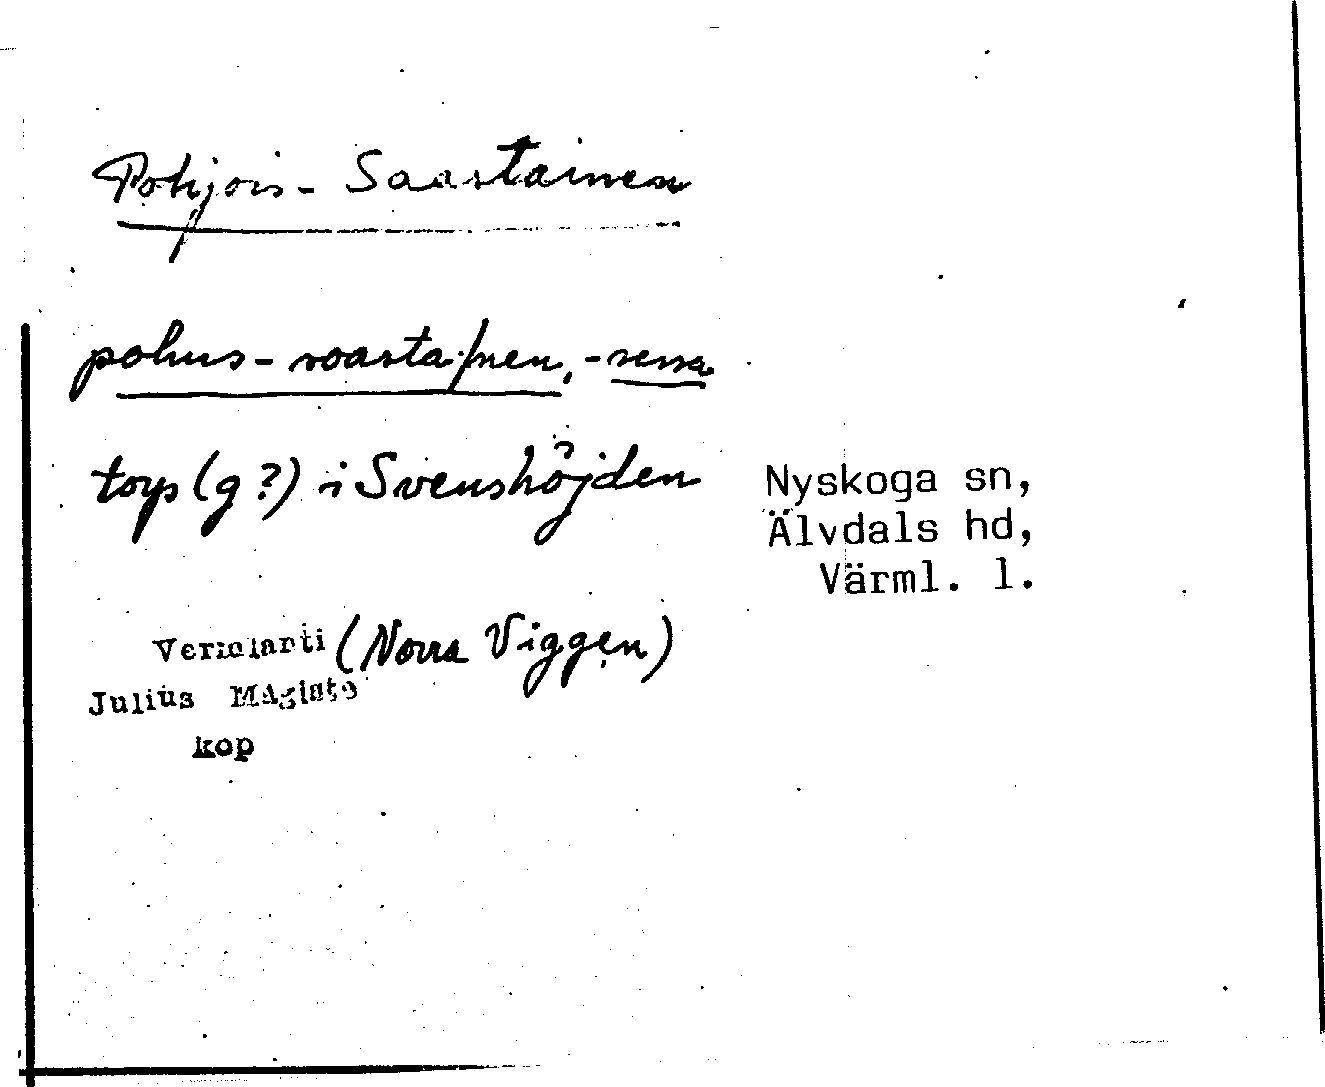 Pohjois-Saastainen
pohus-soastai/nen, -sessa
torp (g?) i Svenshöjden
Nyskoga sn,
Älvdals hd,
Värml. l.
Vermlanti (Norra Viggen)
Julius Mägiste
kop